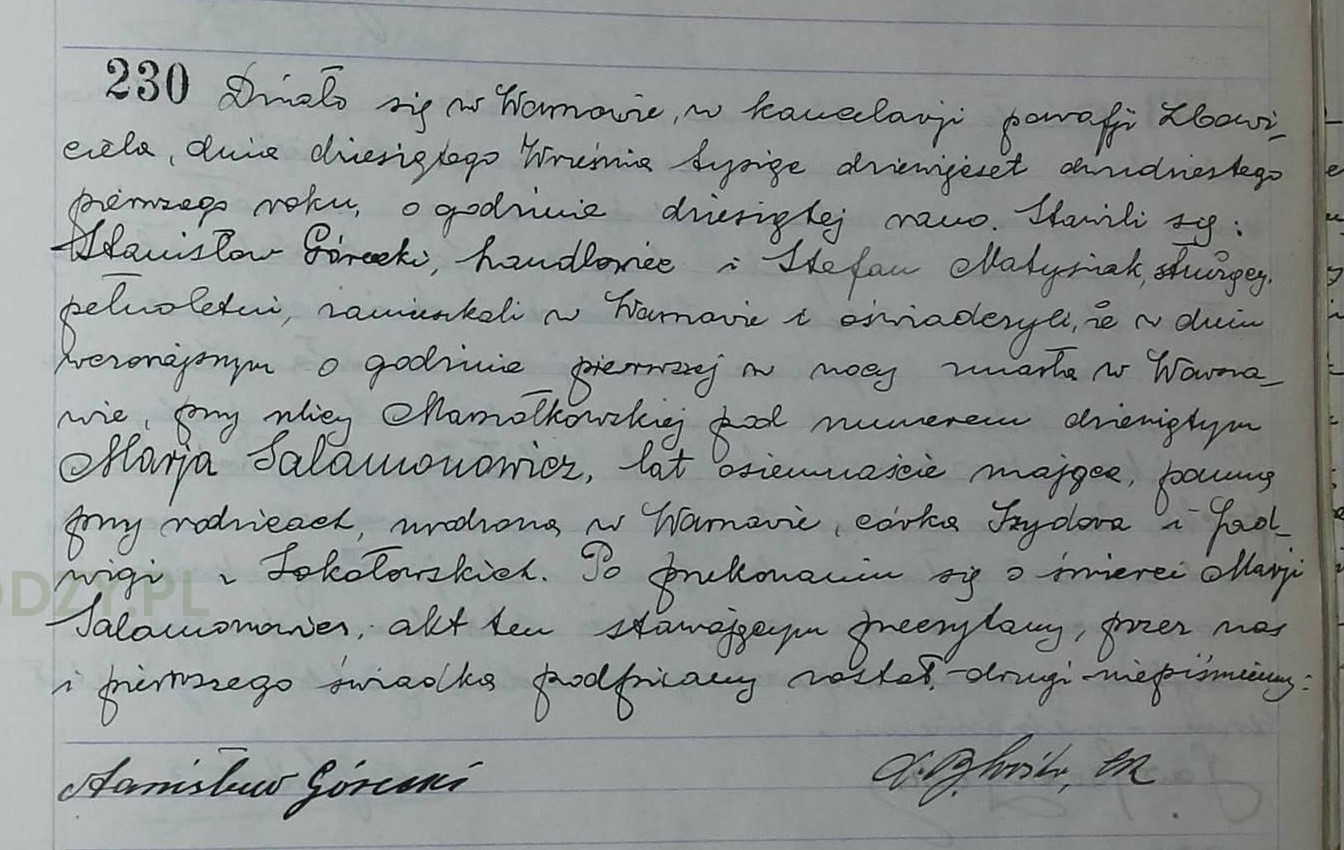 230 Działo się w Warszawie, w kancelarji parafji Zbawi-
ciela, dnia dziesiątego Września tysiąc dziewięćset dwudziestego
pierwszego roku, o godzinie dziesiątej rano. Stawili się:
Stanisław Górecki, handlowiec i Stefan Matysiak, stróżący,
pełnoletni, zamieszkali w Warszawie i oświadczyli, że w dniu
wczorajszym o godzinie pierwszej w nocy zmarła w Warsza-
wie, przy ulicy Marszałkowskiej pod numerem dziewiątym
Marja Salamonowicz, lat osiemnaście mająca, panna
przy rodzicach, urodzona w Warszawie, córka Izydora i Jad-
wigi z Sokołowskich. Po przekonaniu się o śmierci Marji
Salamonowicz, akt ten stawającym przeczytany, przez nas
i pierwszego świadka podpisany został, drugi niepiśmienny:
Stanisław Górecki
ODZY.PL